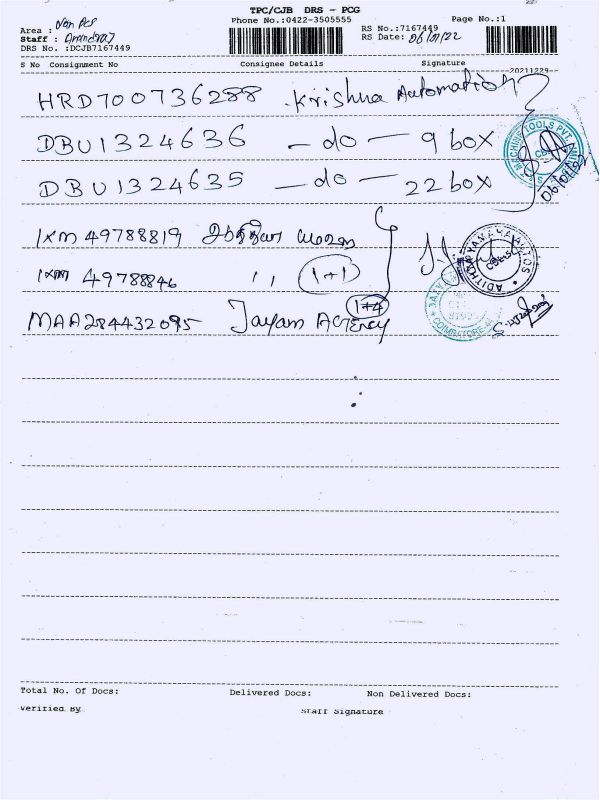 TPC/CJB DRS - PCG
Phone No.:0422-3505555 Page No.:1
Area : Van Pcs
Staff : Anandraj
RS No.:7167449
RS Date: 06/01/22
DRS No. :DCJB7167449
S No Consignment No Consignee Details Signature
20211229
HRD700736288 Krishna Automation
DBU1324636 -do- 9 box
DBU1324635 -do- 22 box
06/01/22
IXM 49788819
IXM 49788846 ,, 1+1
MAA284432095 Jayam Agency 1+4
Total No. Of Docs: Delivered Docs: Non Delivered Docs:
Verified By Staff Signature